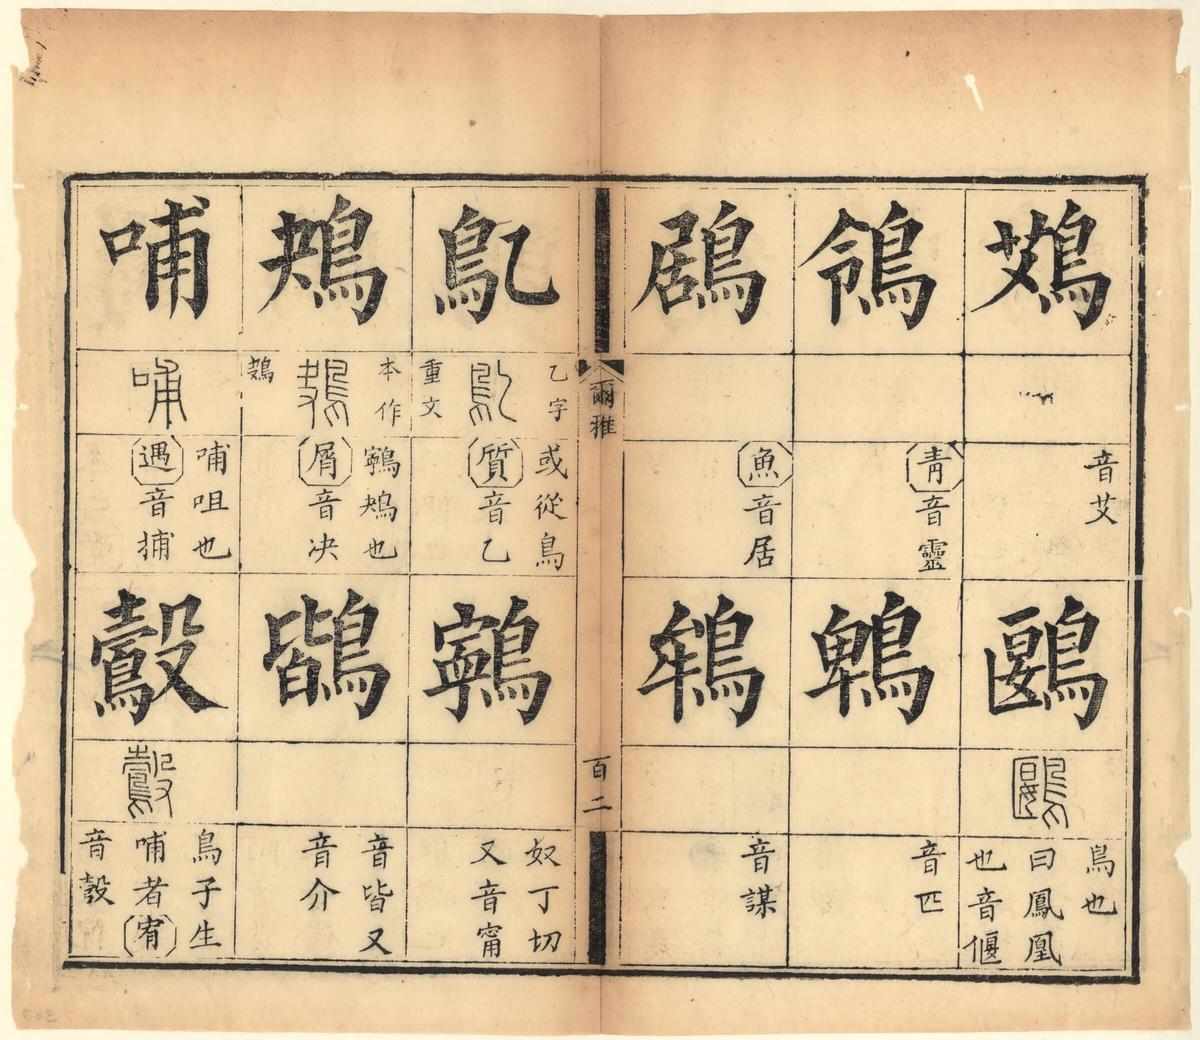 鴱
音艾
鶠
鶠
鳥也
曰鳳凰
也音偃
鴒
青音靈
鵯
音匹
鶋
魚音居
鴾
音謀
爾雅
百二
鳦
乙字
鳦
重文
或從鳥
質音乙
鸋
奴丁切
又音甯
鴂
本作
鴂
鸋鴂也
屑音决
鶛
音皆又
音介
哺
哺
哺咀也
遇音捕
鷇
鷇
鳥子生
哺者宥